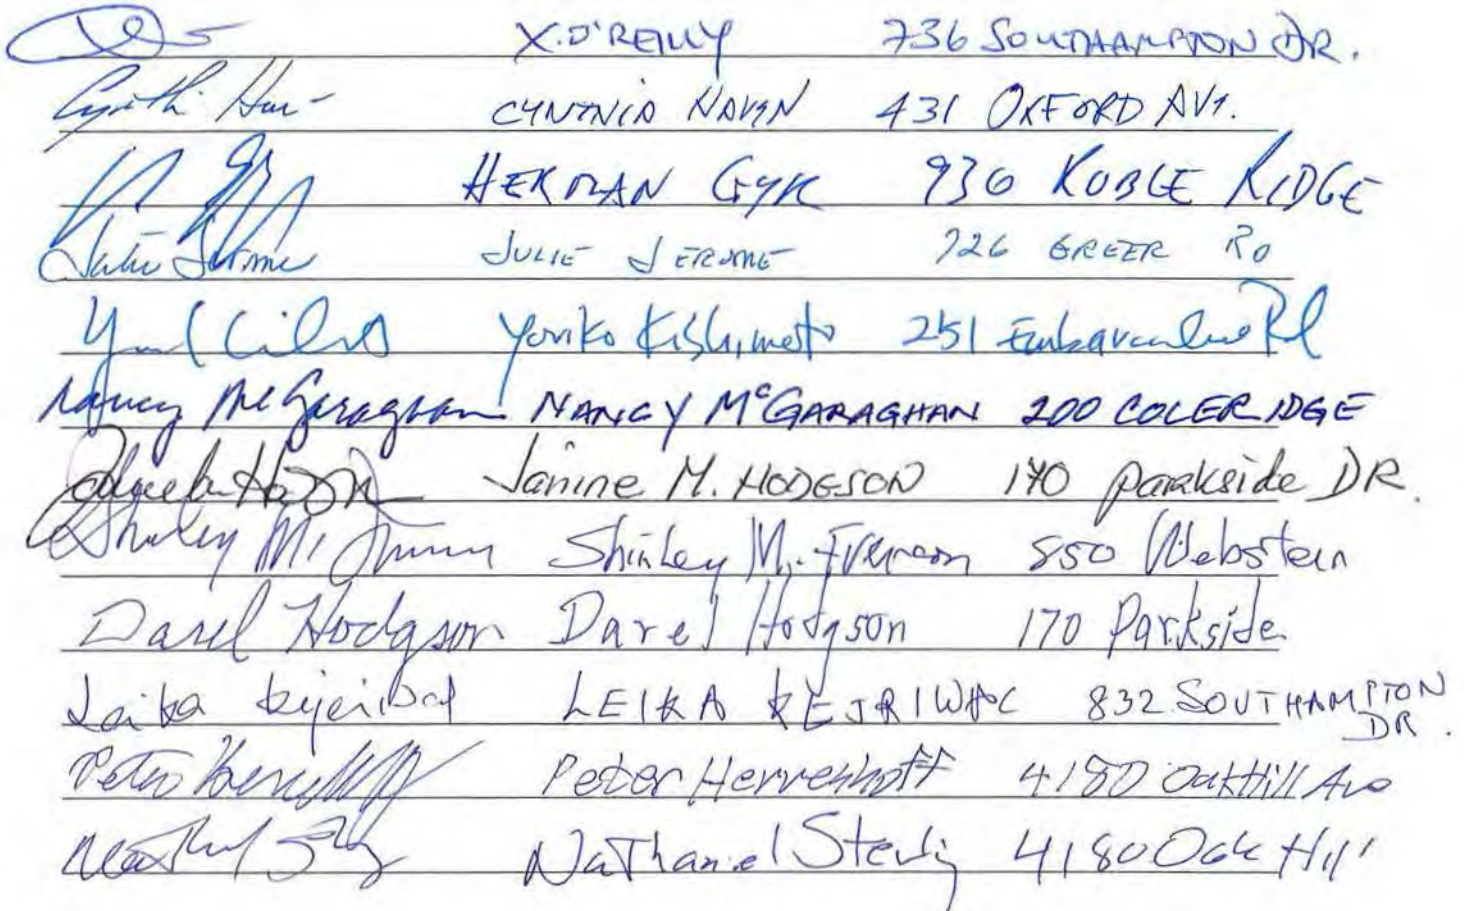 X. O'REILLY 736 SOUTHAMPTON DR.
CYNTHIA 431 OXFORD AVE.
HERMAN GYR 936 ROBLE RIDGE
Julie Jerome JULIE JEROME 726 GREER RD
Yoriko Kishimoto 251 Embarcadero Rd
Nancy McGaraghan NANCY McGARAGHAN 200 COLERIDGE
Janine M. HODGSON 170 parkside DR.
Shirley M. Shirley M. 850 Webster
Darel Hodgson Darel Hodgson 170 Parkside
Leika Kejriwal LEIKA KEJRIWAL 832 SOUTHAMPTON DR.
Peter Herreshoff Peter Herreshoff 4180 Oak Hill Ave
Nathaniel 4180 Oak Hill